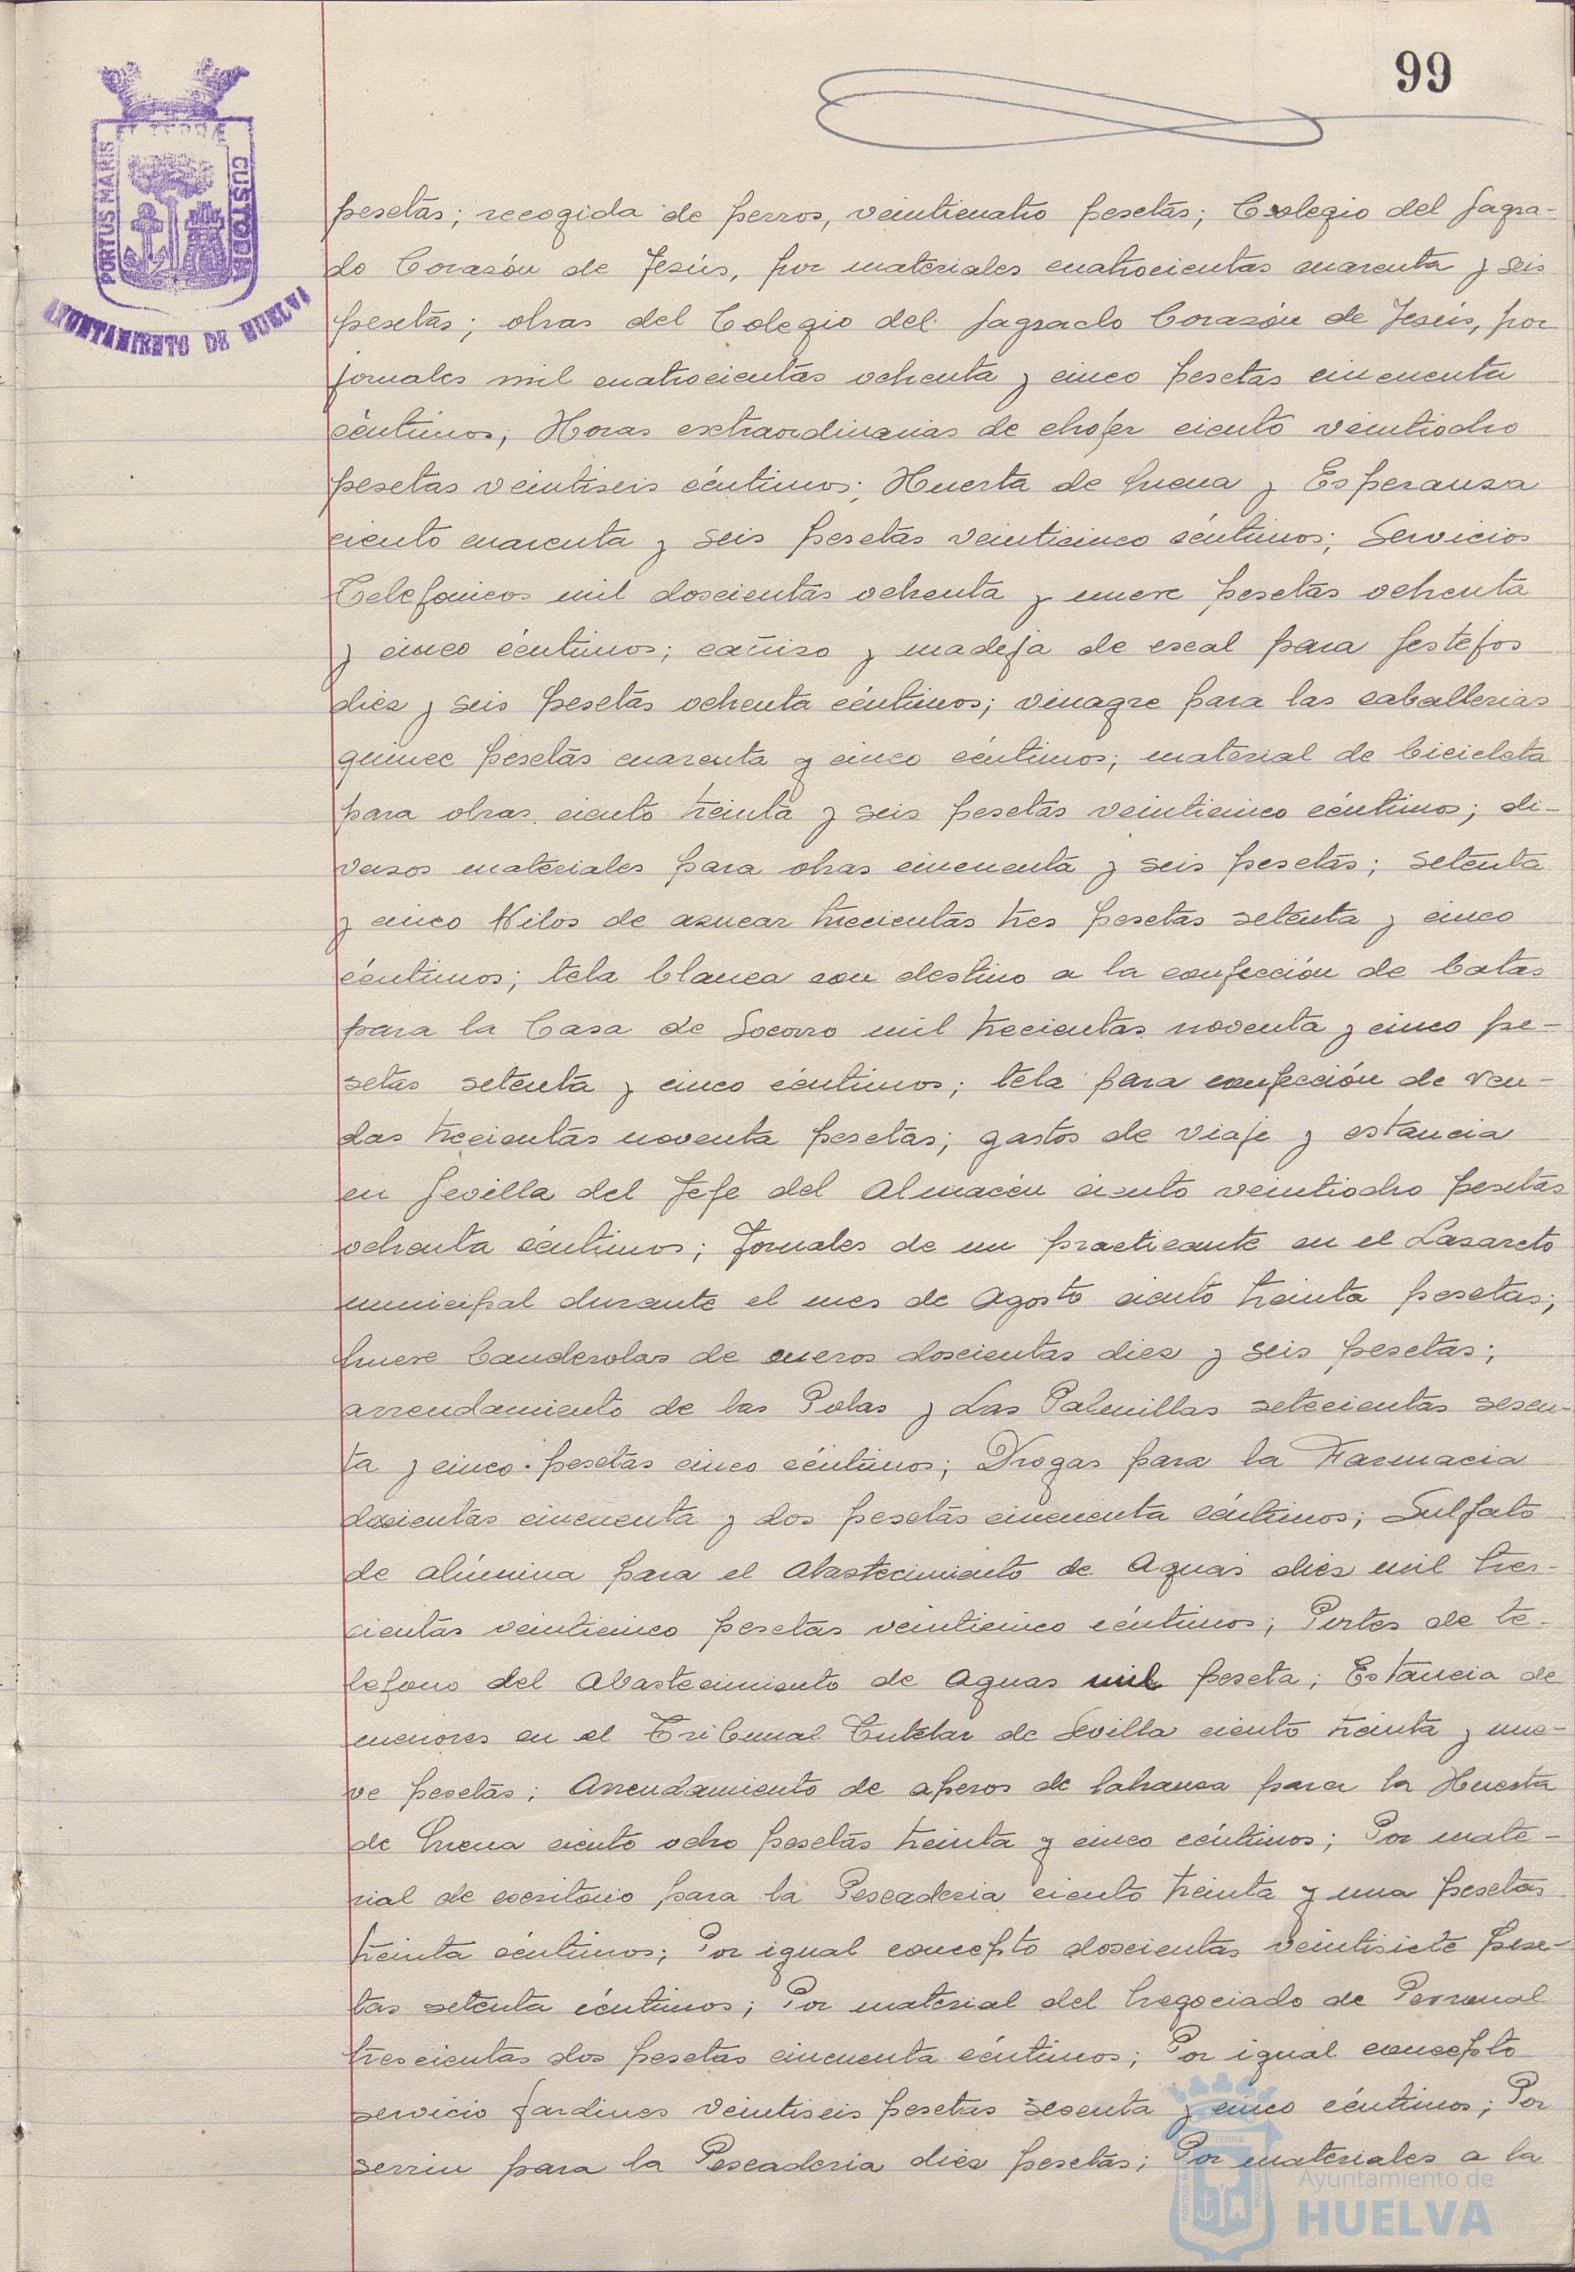 99
PORTUS MARIS
ET TERRÆ
CUSTODIA
AYUNTAMIENTO DE HUELVA
pesetas; recogida de perros, veinticuatro pesetas; Colegio del Sagra-
do Corazón de Jesús, por materiales cuatrocientas cuarenta y seis
pesetas; obras del Colegio del Sagrado Corazón de Jesús, por
jornales mil cuatrocientas ochenta y cinco pesetas cincuenta
céntimos; Horas extraordinarias de chofer ciento veintiocho
pesetas veintiseis céntimos; Huerta de Mena y Esperanza
ciento cuarenta y seis pesetas veinticinco céntimos; Servicios
Telefonicos mil doscientas ochenta y nueve pesetas ochenta
y cinco céntimos; cañizo y madeja de escal para festejos
diez y seis pesetas ochenta céntimos; vinagre para las caballerias
quince pesetas cuarenta y cinco céntimos; material de bicicleta
para obras ciento treinta y seis pesetas veinticinco céntimos; di-
versos materiales para obras cincuenta y seis pesetas; setenta
y cinco Kilos de azucar trecientas tres pesetas setenta y cinco
céntimos; tela blanca con destino a la confección de batas
para la Casa de Socorro mil trecientas noventa y cinco pe-
setas setenta y cinco céntimos; tela para confección de ven-
das trecientas noventa pesetas; gastos de viaje y estancia
en Sevilla del Jefe del Almacén ciento veintiocho pesetas
ochenta céntimos; Jornales de un practicante en el Lazareto
municipal durante el mes de Agosto ciento treinta pesetas;
nueve banderolas de cueros doscientas diez y seis pesetas;
arrendamiento de las Polas y Las Palmillas setecientas sesen-
ta y cinco pesetas cinco céntimos; Drogas para la Farmacia
doscientas cincuenta y dos pesetas cincuenta céntimos; Sulfato
de alúmina para el Abastecimiento de Aguas diez mil tres-
cientas veinticinco pesetas veinticinco céntimos; Portes de te-
lefono del Abastecimiento de Aguas mil peseta; Estancia de
menores en el Tribunal Tutelar de Sevilla ciento treinta y nue-
ve pesetas; Arrendamiento de aperos de labranza para la Huerta
de Mena ciento ocho pesetas treinta y cinco céntimos; Por mate-
rial de escritorio para la Pescaderia ciento treinta y una pesetas
treinta céntimos; Por igual concepto doscientas veintisiete pese-
tas setenta céntimos; Por material del Negociado de Personal
trescientas dos pesetas cincuenta céntimos; Por igual concepto
servicio jardines veintiseis pesetas sesenta y cinco céntimos; Por
serrin para la Pescaderia diez pesetas; Por materiales a la
Ayuntamiento de
HUELVA